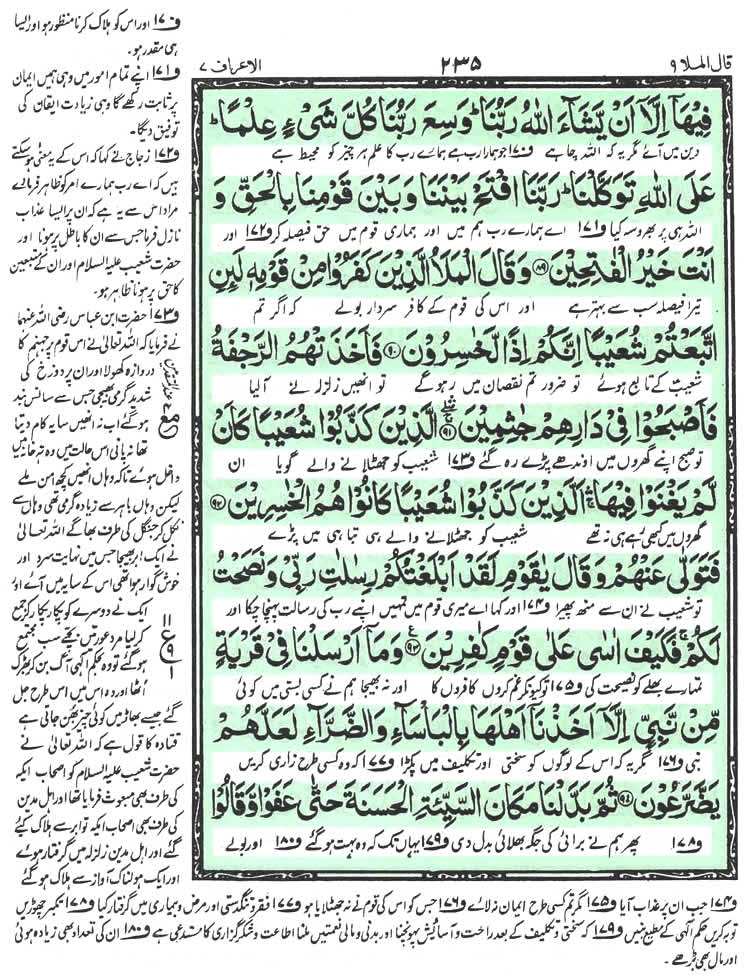 قال الملا ۹
۲۳۵
الاعراف ۷
فِیْهَاۤ اِلَّاۤ اَنْ یَّشَآءَ اللّٰهُ رَبُّنَاؕ وَسِعَ رَبُّنَا كُلَّ شَیْءٍ عِلْمًاؕ
دین میں آئے مگر یہ کہ اللہ چاہے ف۱۷۰ جو ہمارا رب ہے ہمارے رب کا علم ہر چیز کو محیط ہے
عَلَى اللّٰهِ تَوَكَّلْنَاؕ رَبَّنَا افْتَحْ بَیْنَنَا وَ بَیْنَ قَوْمِنَا بِالْحَقِّ وَ
اللہ ہی پر بھروسہ کیا ف۱۷۱ اے ہمارے رب ہم میں اور ہماری قوم میں حق فیصلہ کر ف۱۷۲ اور
اَنْتَ خَیْرُ الْفٰتِحِیْنَ ﴿۸۹﴾ وَ قَالَ الْمَلَاُ الَّذِیْنَ كَفَرُوْا مِنْ قَوْمِهٖ لَىِٕنِ
تیرا فیصلہ سب سے بہتر ہے اور اس کی قوم کے کافر سردار بولے کہ اگر تم
اتَّبَعْتُمْ شُعَیْبًا اِنَّكُمْ اِذًا لَّخٰسِرُوْنَ ﴿۹۰﴾ فَاَخَذَتْهُمُ الرَّجْفَةُ
شعیب کے تابع ہوئے تو ضرور تم نقصان میں رہوگے تو انھیں زلزلہ نے آلیا
فَاَصْبَحُوْا فِیْ دَارِهِمْ جٰثِمِیْنَ ﴿۹۱﴾ الَّذِیْنَ كَذَّبُوْا شُعَیْبًا كَاَنْ
تو صبح اپنے گھروں میں اوندھے پڑے رہ گئے ف۱۷۳ شعیب کو جھٹلانے والے گویا ان
لَّمْ یَغْنَوْا فِیْهَا ۛۚ اَلَّذِیْنَ كَذَّبُوْا شُعَیْبًا كَانُوْا هُمُ الْخٰسِرِیْنَ ﴿۹۲﴾
گھروں میں کبھی رہے ہی نہ تھے شعیب کو جھٹلانے والے ہی تباہی میں پڑے
فَتَوَلّٰى عَنْهُمْ وَ قَالَ یٰقَوْمِ لَقَدْ اَبْلَغْتُكُمْ رِسٰلٰتِ رَبِّیْ وَ نَصَحْتُ
تو شعیب نے ان سے منھ پھیرا ف۱۷۴ اور کہا اے میری قوم میں تمہیں اپنے رب کی رسالت پہنچا چکا اور
لَكُمْۚ فَكَیْفَ اٰسٰى عَلٰى قَوْمٍ كٰفِرِیْنَ ﴿۹۳﴾ وَ مَاۤ اَرْسَلْنَا فِیْ قَرْیَةٍ
تمہارے بھلے کو نصیحت کی ف۱۷۵ تو کیونکر غم کروں کافروں کا اور نہ بھیجا ہم نے کسی بستی میں کوئی
مِّنْ نَّبِیٍّ اِلَّاۤ اَخَذْنَاۤ اَهْلَهَا بِالْبَاْسَآءِ وَ الضَّرَّآءِ لَعَلَّهُمْ
نبی ف۱۷۶ مگر یہ کہ اس کے لوگوں کو سختی اور تکلیف میں پکڑا ف۱۷۷ کہ وہ کسی طرح زاری کریں
یَضَّرَّعُوْنَ ﴿۹۴﴾ ثُمَّ بَدَّلْنَا مَكَانَ السَّیِّئَةِ الْحَسَنَةَ حَتّٰى عَفَوْا وَّ قَالُوْا
ف۱۷۸ پھر ہم نے برائی کی جگہ بھلائی بدل دی ف۱۷۹ یہاں تک کہ وہ بہت ہوگئے ف۱۸۰ اور بولے
ف۱۷۰ اور اس کو ہلاک کرنا منظور ہو اور ایسا
ہی مقدر ہو۔
ف۱۷۱ اپنے تمام امور میں وہی ہمیں ایمان
پر ثابت رکھے گا وہی زیادت ایقان کی
توفیق دیگا۔
ف۱۷۲ زجاج نے کہا کہ اس کے یہ معنی ہوسکتے
ہیں کہ اے رب ہمارے امر کو ظاہر فرمادے
مراد اس سے یہ ہے کہ ان پر ایسا عذاب
نازل فرما جس سے ان کا باطل پر ہونا اور
حضرت شعیب علیہ السلام اور ان کے متبعین
کا حق پر ہونا ظاہر ہو۔
ف۱۷۳ حضرت ابن عباس رضی اللہ عنہما
نے فرمایا کہ اللہ تعالیٰ نے اس قوم پر جہنم کا
دروازہ کھولا اور ان پر دوزخ کی
شدید گرمی بھیجی جس سے سانس بند
ہوگئے اب نہ انھیں سایہ کام دیتا
تھا نہ پانی اس حالت میں وہ تہ خانہ میں
داخل ہوئے تاکہ وہاں انھیں کچھ امن ملے
لیکن وہاں باہر سے زیادہ گرمی تھی وہاں سے
نکل کر جنگل کی طرف بھاگے اللہ تعالیٰ
نے ایک ابر بھیجا جس میں نہایت سرد اور
خوش گوار ہوا تھی اس کے سایہ میں آئے اور
ایک نے دوسرے کو پکار پکار کر جمع
کرلیا مرد عورتیں بچے سب مجتمع
ہوگئے تو وہ بحکم الٰہی آگ بن کر بھڑک
اٹھا اور وہ اس میں اس طرح جل
گئے جیسے بھاڑ میں کوئی چیز بھن جاتی ہے
قتادہ کا قول ہے کہ اللہ تعالیٰ نے
حضرت شعیب علیہ السلام کو اصحاب ایکہ
کی طرف بھی مبعوث فرمایا تھا اور اہل مدین
کی طرف بھی اصحاب ایکہ تو ابر سے ہلاک کیئے
گئے اور اہل مدین زلزلہ میں گرفتار ہوئے
اور ایک ہولناک آواز سے ہلاک ہوگئے
ف۱۷۴ جب ان پر عذاب آیا ف۱۷۵ مگر تم کسی طرح ایمان نہ لائے ف۱۷۶ جس کو اس کی قوم نے نہ جھٹلایا ہو ف۱۷۷ فقر و تنگدستی اور مرض و بیماری میں گرفتار کیا ف۱۷۸ تکبر چھوڑیں
توبہ کریں حکم الٰہی کے مطیع بنیں ف۱۷۹ کہ سختی و تکلیف کے بعد راحت و آسائش پہونچنا اور بدنی و مالی نعمتیں ملنا اطاعت و شکر گزاری کا مستدعی ہے ف۱۸۰ ان کی تعداد بھی زیادہ ہوئی
اور مال بھی بڑھے۔